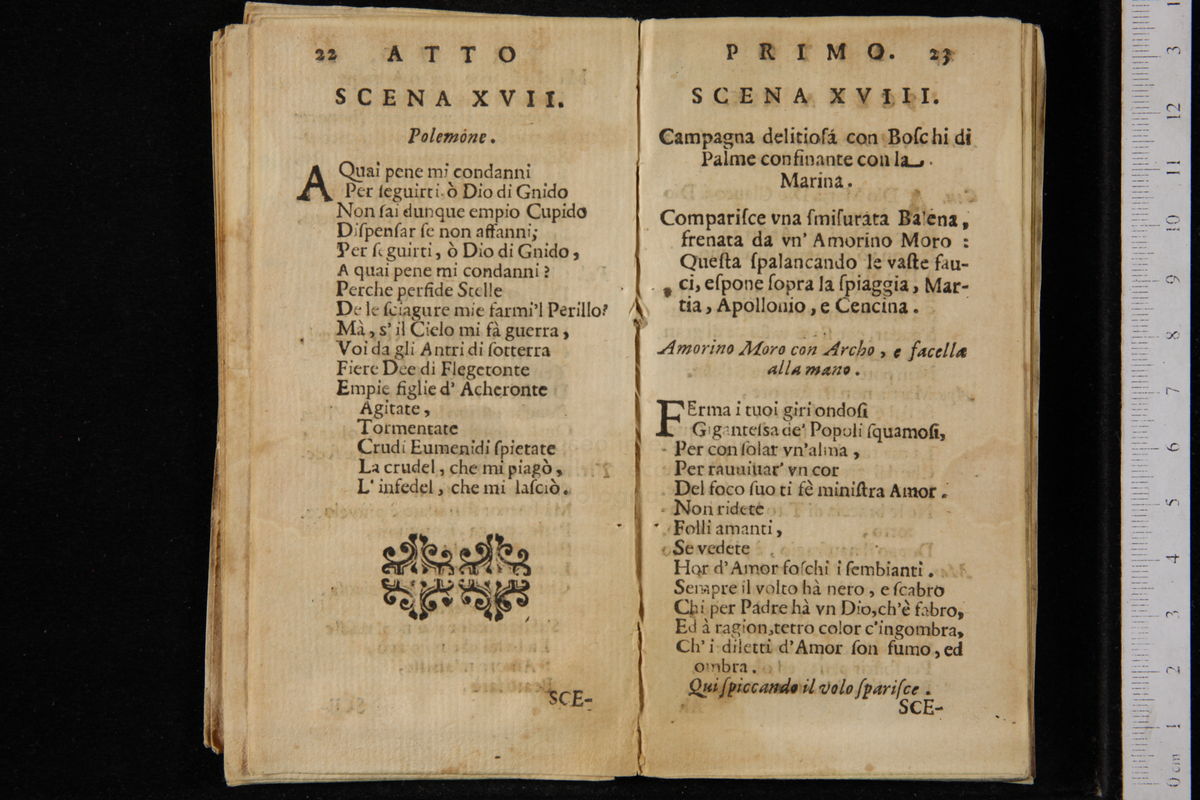 22 ATTO
SCENA XVII.
Polemone.
A Quai pene mi condanni
Per ſeguirti, ò Dio di Gnido
Non ſai dunque empio Cupido
Diſpenſar ſe non affanni;
Per ſeguirti, ò Dio di Gnido,
A quai pene mi condanni?
Perche perfide Stelle
De le ſciagure mie farmi'l Perillo?
Mà, s' il Cielo mi fà guerra,
Voi da gli Antri di ſotterra
Fiere Dee di Flegetonte
Empie figlie d' Acheronte
Agitate,
Tormentate
Crudi Eumenidi ſpietate
La crudel, che mi piagò,
L' infedel, che mi laſciò.
SCE-
PRIMO. 23
SCENA XVIII.
Campagna delitioſa con Boſchi di
Palme confinante con la
Marina.
Compariſce vna ſmiſurata Balena,
frenata da vn' Amorino Moro:
Queſta ſpalancando le vaſte fau-
ci, eſpone ſopra la ſpiaggia, Mar-
tia, Apollonio, e Cencina.
Amorino Moro con Archo, e facella
alla mano.
FErma i tuoi giri ondoſi
Giganteſsa de' Popoli ſquamoſi,
Per conſolar vn'alma,
Per rauuiuar' vn cor
Del foco ſuo ti fè miniſtra Amor.
Non ridete
Folli amanti,
Se vedete
Hor d'Amor foſchi i ſembianti.
Sempre il volto hà nero, e ſcabro
Chi per Padre hà vn Dio, ch'è fabro,
Ed à ragion, tetro color c'ingombra,
Ch' i diletti d'Amor ſon fumo, ed
ombra.
Qui ſpiccando il volo ſpariſce.
SCE-
3
12
11
10
9
8
7
6
5
4
3
2
1
0 cm